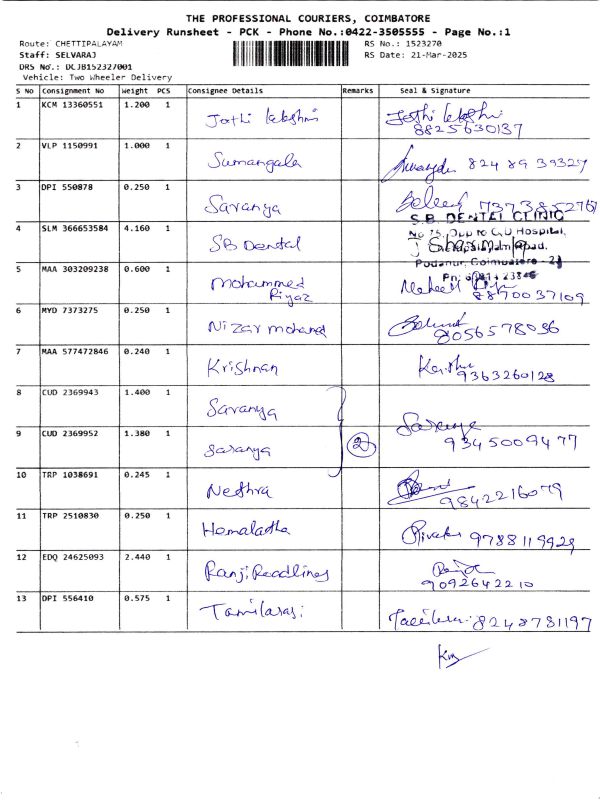 THE PROFESSIONAL COURIERS, COIMBATORE
Delivery Runsheet - PCK - Phone No.:0422-3505555 - Page No.:1
Route: CHETTIPALAYAM RS No.: 1523270
Staff: SELVARAJ RS Date: 21-Mar-2025
DRS No.: DLJB152327001
Vehicle: Two Wheeler Delivery
S No Consignment No Weight PCS Consignee Details Remarks Seal & Signature
1 KCM 13360551 1.200 1 Jothi lekshmi Jothi lekshmi
8825630137
2 VLP 1150991 1.000 1 Sumangala 82489 39327
3 DPI 550878 0.250 1 Saranya 7373852767
S.B. DENTAL CLINIC
4 SLM 366653584 4.160 1 SB Dental No 75, Opp to G.D Hospital,
Podanur, Coimbatore - 23
5 MAA 303209238 0.600 1 Mohammed
Riyaz 8870037109
6 MYD 7373275 0.250 1 Nizar mohamed 8056578096
7 MAA 577472846 0.240 1 Krishnan 9363260128
8 CUD 2369943 1.400 1 Saranya
9 CUD 2369952 1.380 1 Saranya 2 Saranya
9345009477
10 TRP 1038691 0.245 1 Nethra 9842216079
11 TRP 2510830 0.250 1 Hemalatha 9788119929
12 EDQ 24625093 2.440 1 Ranji Readlines 9092642210
13 DPI 556410 0.575 1 Tamilarasi 8248781197